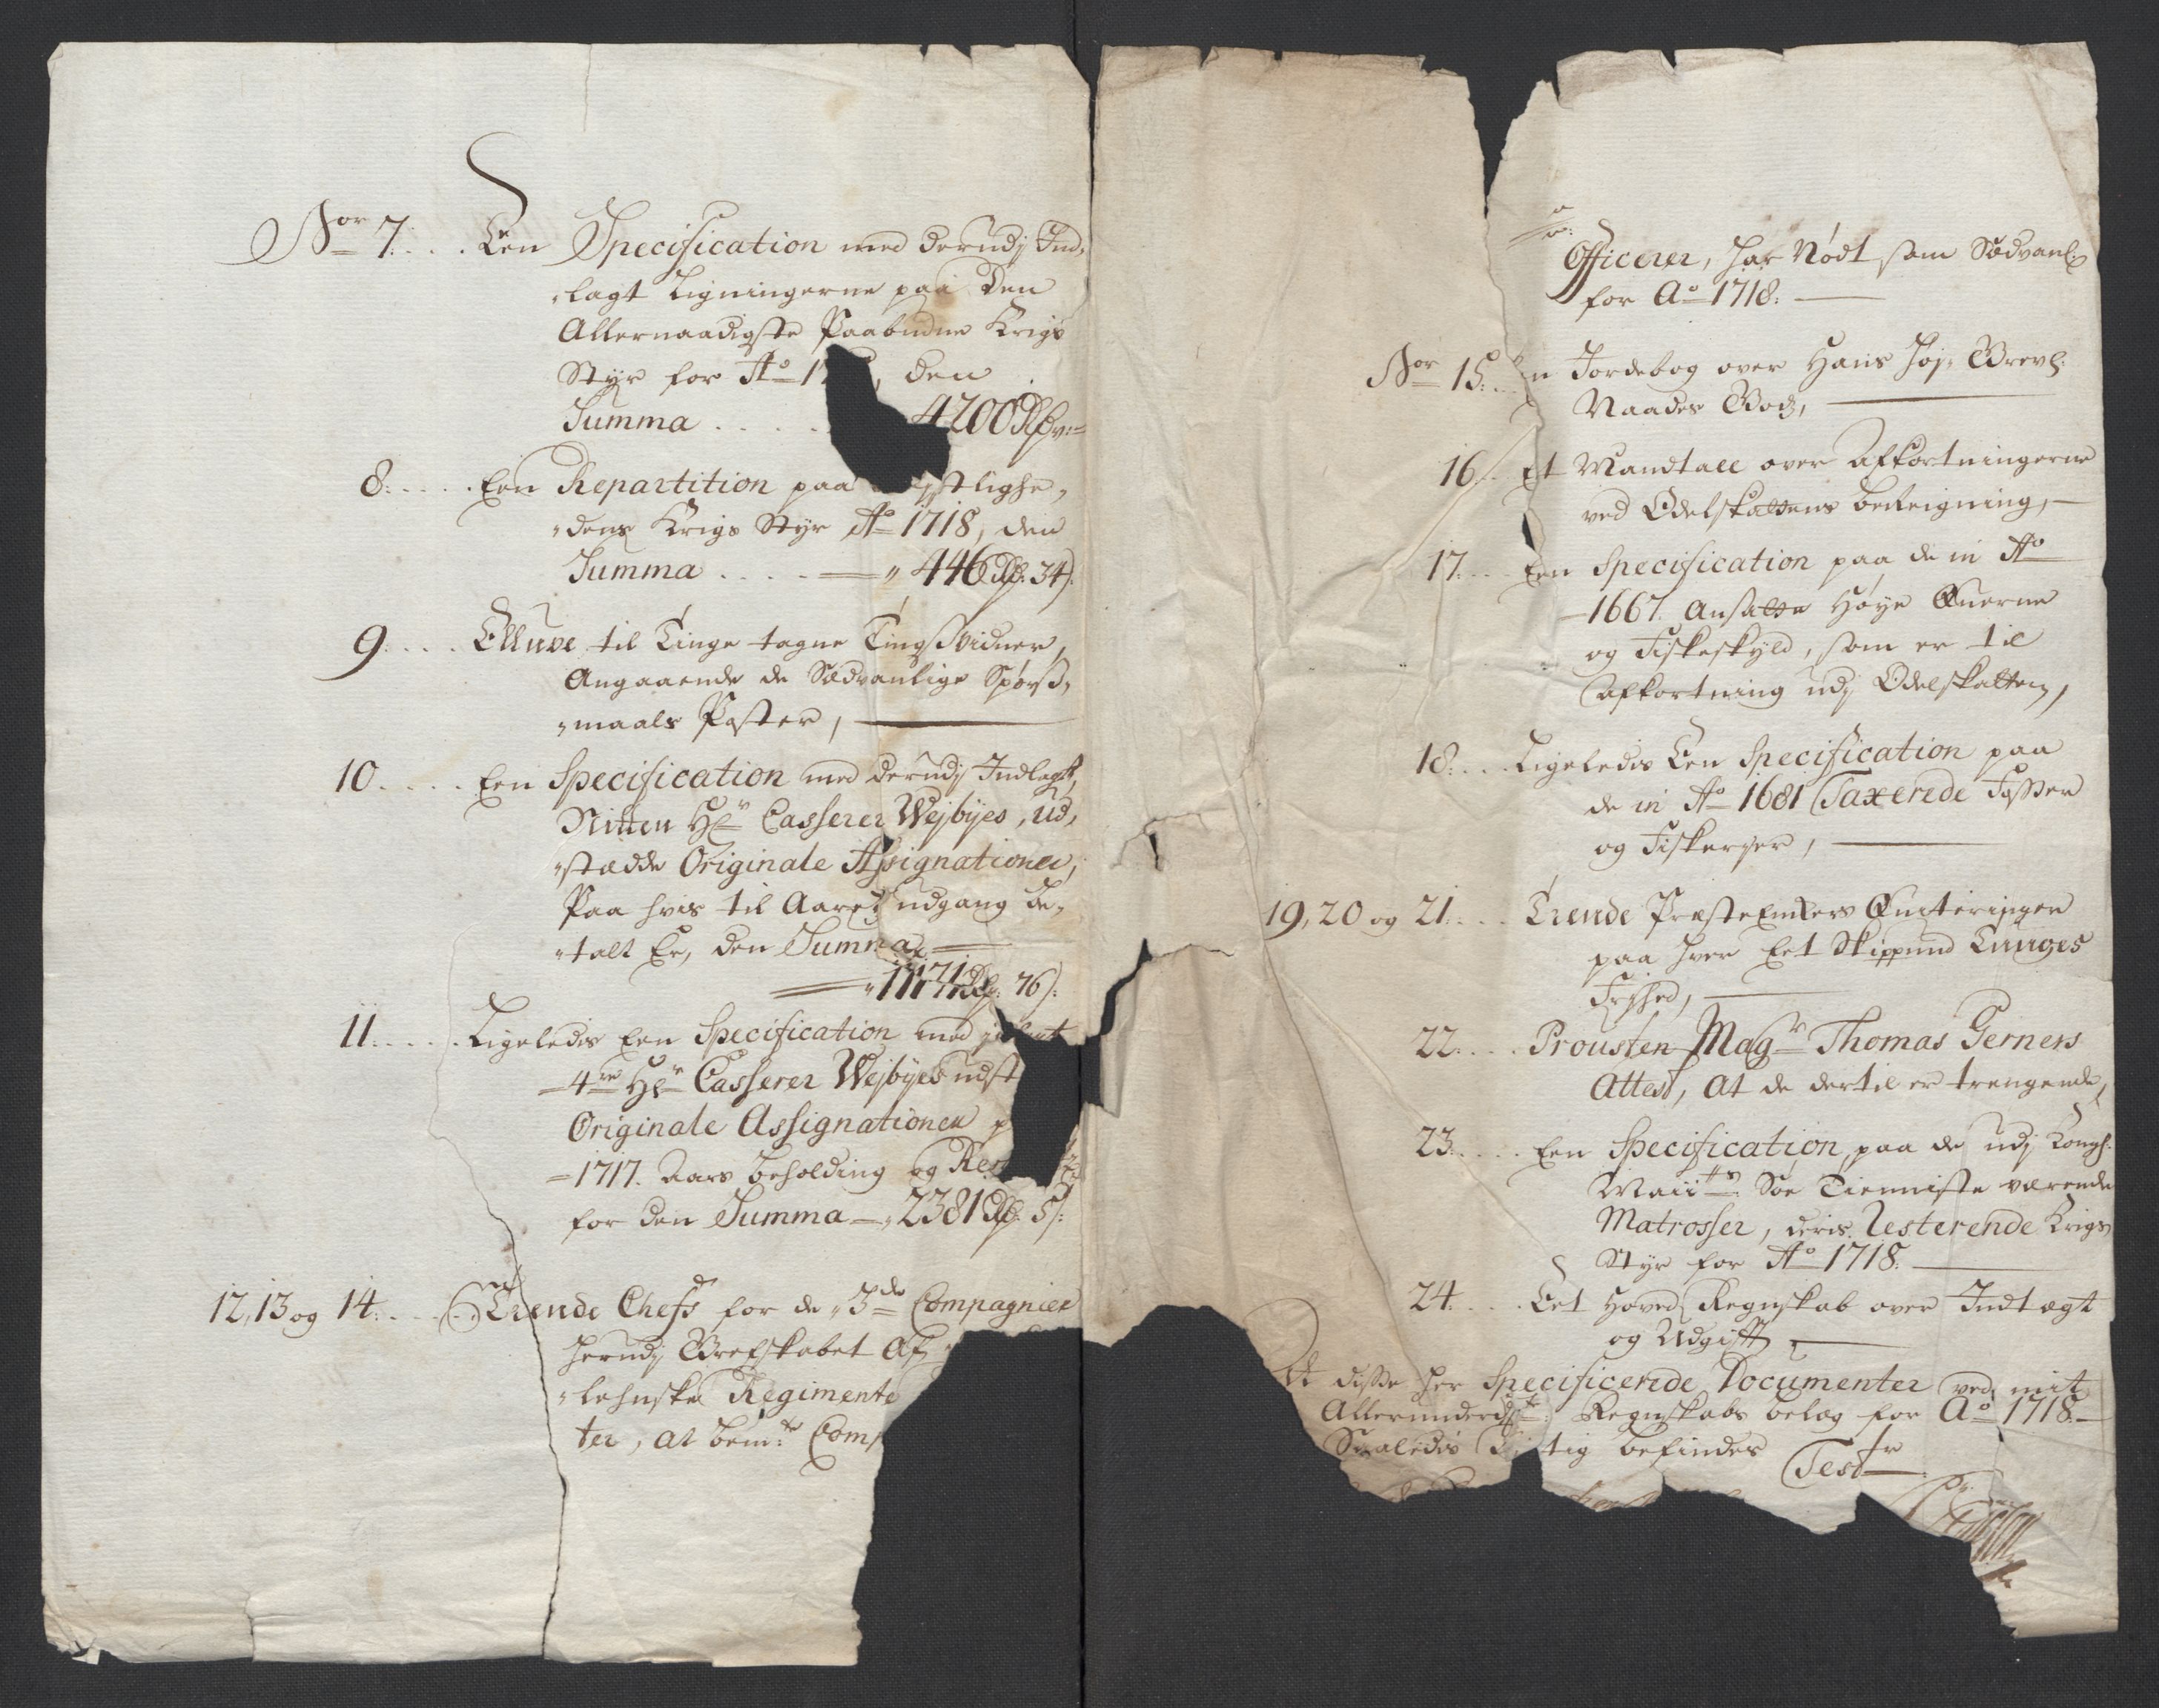 Nor 7. . . . Een Specification med derudj Ind„
„lagt Ligningerne paa den
Allernaadigste Paabudne Krigs
Styr for Ao 17 , den
Summa . . . . 4200 Rdr
8. . . . . Een Repartition paa stlighe„
„dens Krigs Styr Ao 1718, den
Summa . . . . — „ 446 Rdr. 34
9. . . . Elluve til Tinge tagne Tingsvidner,
Angaaende de Sædvanlige Spørs„
„maals Poster, —
10. . . . . Een Specification med derudj Indlagt,
Nitten Hr Casserer Wejbyes, ud„
„stædde Originale Assignationer,
Paa hvis til Aarets udgang be„
„talt Er, den Summa —
— „ 1171 Rdr. 76
11. . . . . Ligeledis Een Specification med
4re Hr Casserer Wejbyes udst
Originale Assignationer p
1717. Aars beholding og Res
for den Summa — „ 2381 Rdr. 5
12, 13 og 14. . . . Trende Chefs for de „ 3de Compagnier
herudj Grefskabet Af
„lehnske Regimente
ter, at bemte Comp
Officerer, har Nødt som Sædvanl:
for Ao 1718. —
Nor 15. . . n Jordebog over Hans Høj- Grevl:
Naades Gods, —
16. . Et Mandtall over Afkortningerne
ved Odelskattens beregning, —
17. . . . Een Specification paa de in Ao
1667. Ansatte Høye Qverne
og Fiskeskyld, som er til
Afkortning udj Odelskatten,
18. . . . Ligeledis Een Specification paa
de in Ao 1681 Taxerede Fosser
og Fiskerjer, —
19, 20 og 21. . . . Trende PræsteEnkers Qviteringer
paa hver Eet Skippund Tunges
Frjhed, —
22. . . . Prousten Magr Thomas Gerners
Attest, At de dertil er trengende,
23. . . . . Een Specification, paa de udj Kongl:
Maiits Søe Tienniste værende
Matrosser, deris Resterende Krigs
Styr for Ao 1718. —
24. . . . Eet Hoved Regnskab over Indtægt
og Udgift, —
At disse her Specificerede Documenter ved mit
Allerunderdste Regnskabs belæg for Ao 1718. —
Saaledis tig befindes Tester